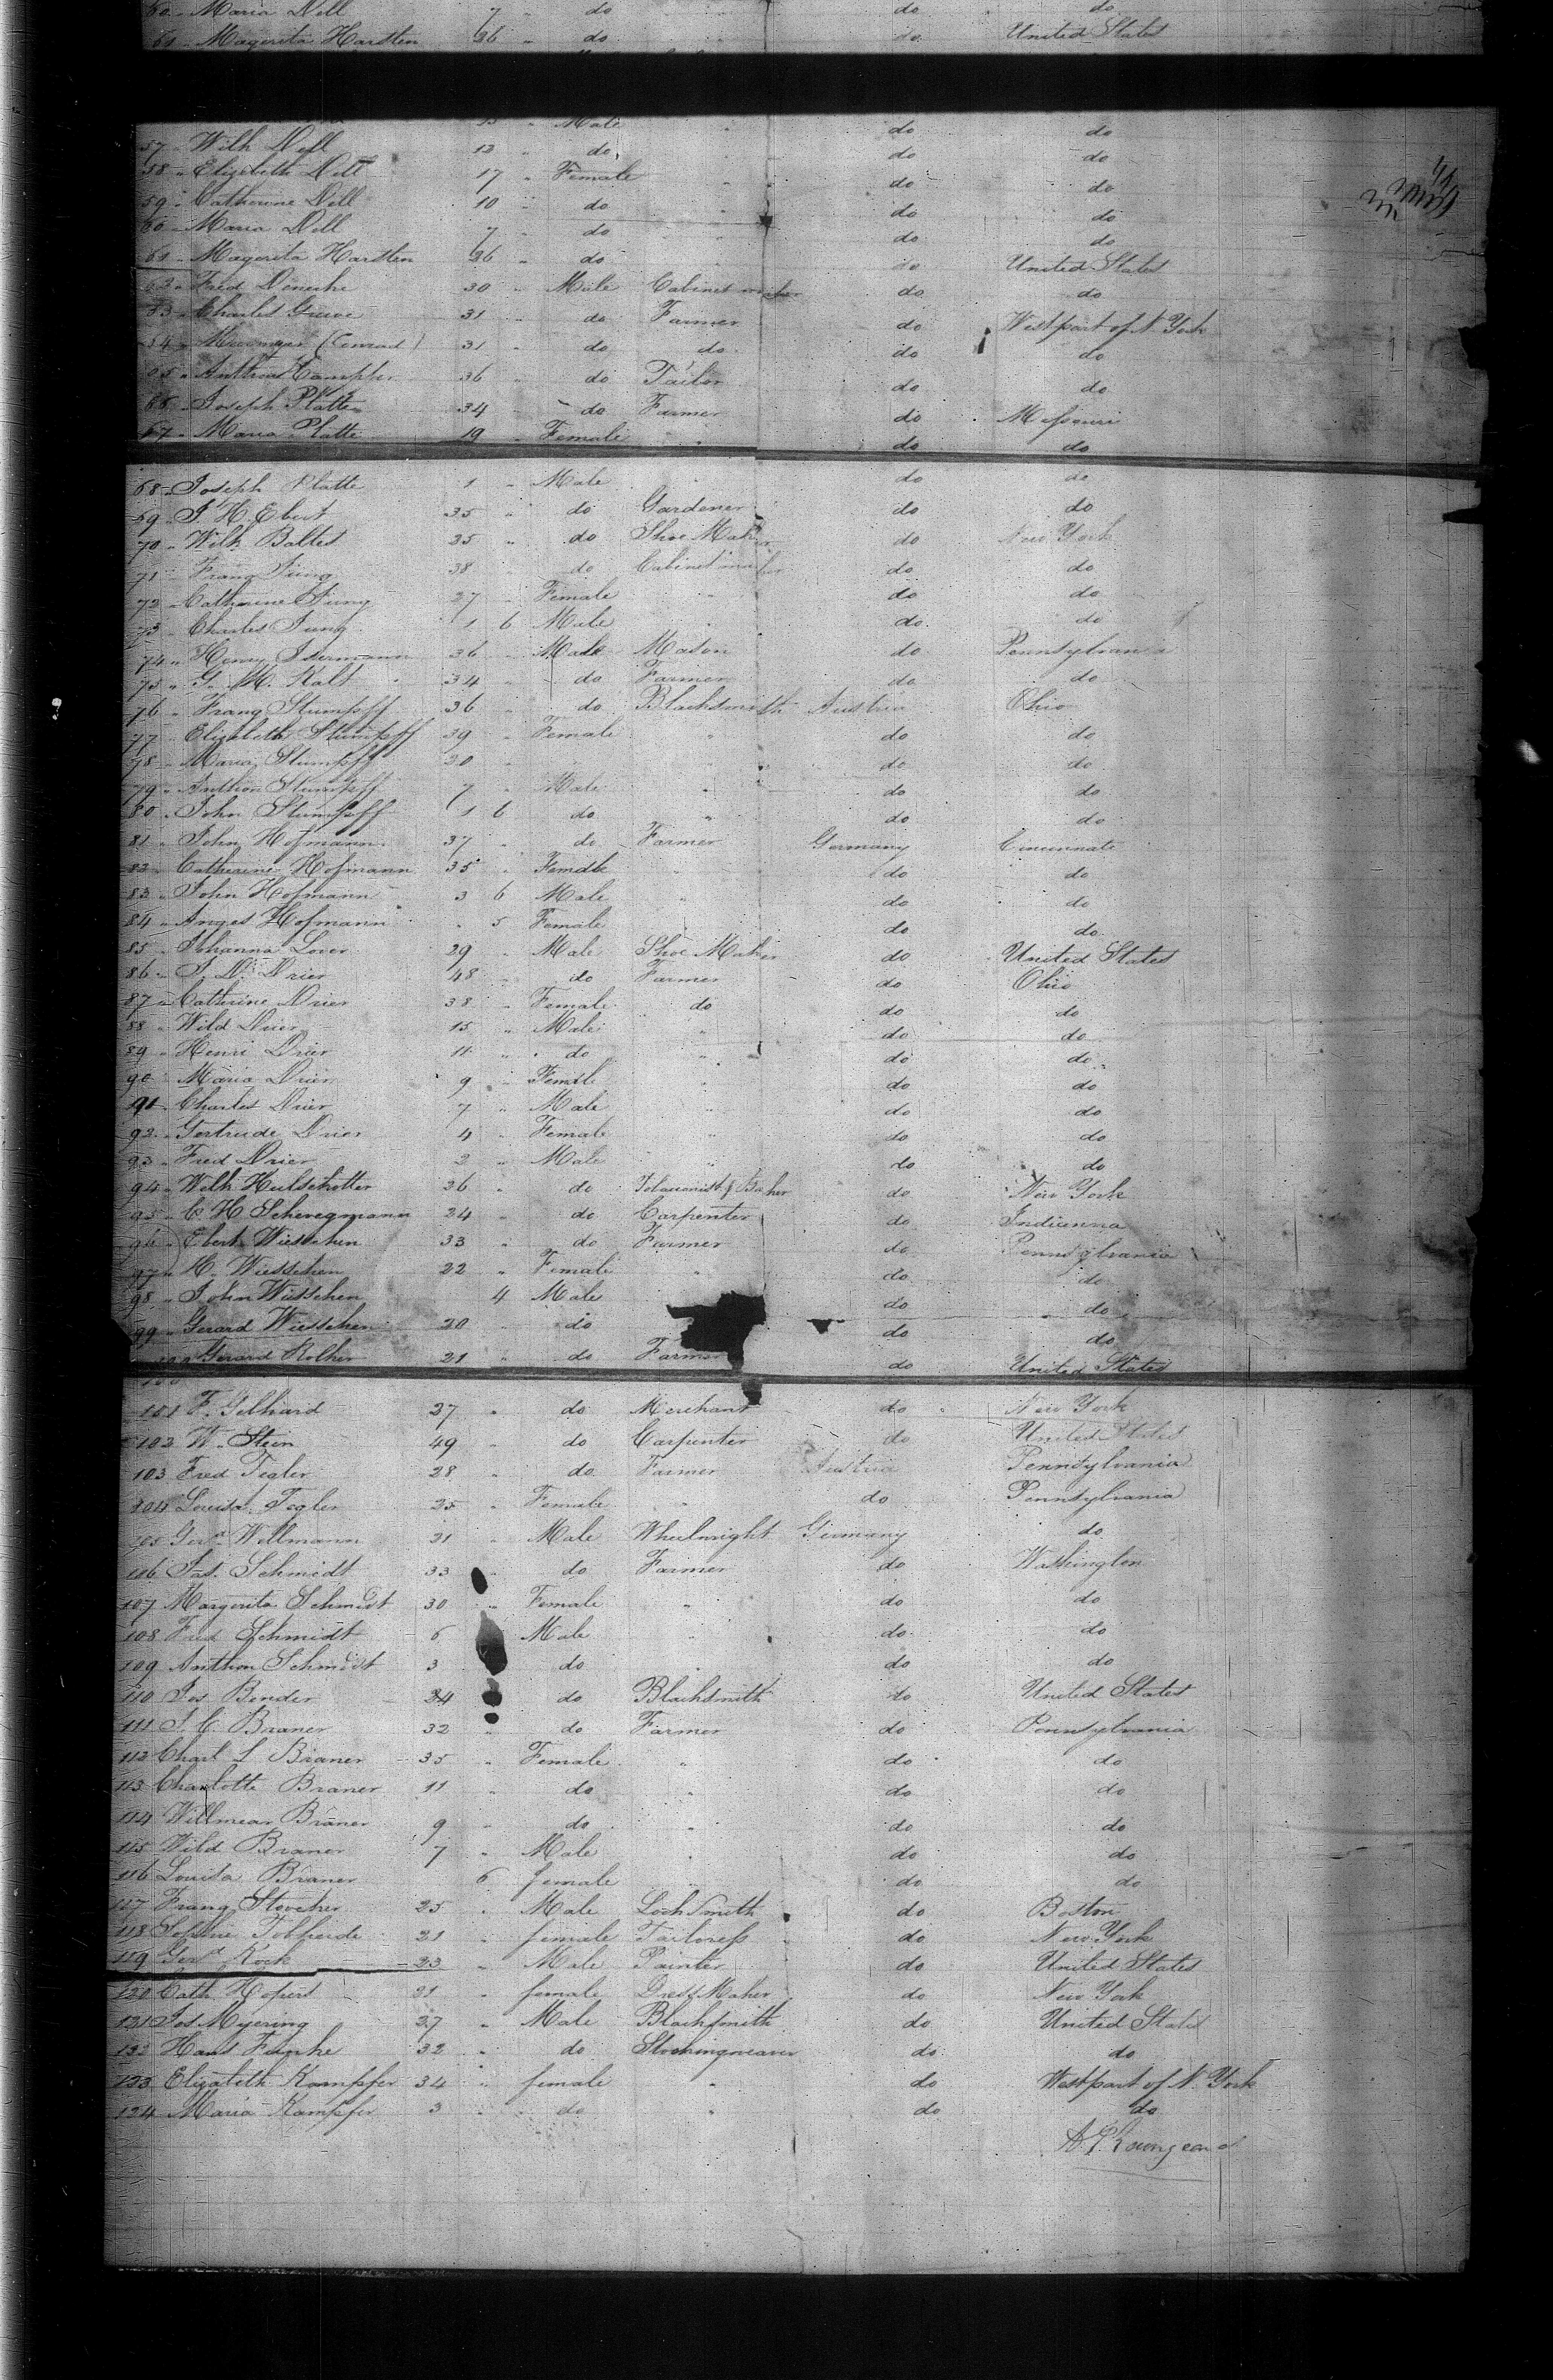 60 " Maria Dell 7 " do do do
61 " Magerita Harsten 36 " do do United States
Male do do
57 " Wilh Dell 13 " do do do
58 " Elizabeth Dell 17 " Female do do
59 " Catherine Dell 10 " do do do
60 " Maria Dell 7 " do do do
61 " Magerita Harsten 36 " do do United States
62 " Fred 30 " Male Cabinet maker do do
63 " Charles 31 " do Farmer do West part of N. York
64 " (Conrad) 31 " do do do do
65 " Anthon Kampfer 36 " do Tailor do do
66 " Joseph Platte 34 " do Farmer do Messouri
67 " Maria Platte 19 " Female " do do
68 " Joseph Platte 1 " Male do do
69 " J. H. Ebert 35 " do Gardener do do
70 " Wilh Baltes 25 " do Shoe Maker do New York
71 " Franz Jung 38 " do Cabinet maker do do
72 " Catherine Jung 27 " Female " do do
73 " Charles Jung 1 6 Male " do do
74 " Henry 36 " Male Mason do Pennsylvania
75 " G. M. Kalt 34 " do Farmer do do
76 " Franz Stumpff 36 " do Blacksmith Austria Ohio
77 " Elizabeth Stumpff 39 " Female " do do
78 " Maria Stumpff 20 " do do
79 " Anthon Stumpff 7 " Male " do do
80 " John Stumpff 1 6 do " do do
81 " John Hofmann 37 " do Farmer Germany Cincinnate
82 " Catherine Hofmann 35 " Female " do do
83 " John Hofmann 3 6 Male " do do
84 " Anges Hofmann " 5 Female do do
85 " Johanna Lover 29 " Male Shoe Maker do United States
86 " J. D. Drier 48 " do Farmer do Ohio
87 " Catherine Drier 38 " Female do do do
88 " Wild Drier 15 " Male " do do
89 " Henri Drier 11 " do " do do
90 " Maria Drier 9 " Female " do do
91 " Charles Drier 7 " Male " do do
92 " Gertrude Drier 4 " Female " do do
93 " Fred Drier 2 " Male " do do
94 " Wilh Hulshotter 26 " do Baker do New York
95 " C. H. Schwegmann 24 " do Carpenter do Indianna
96 " Ebert Wieschen 33 " do Farmer do Pennsylvania
97 " H. Wieschen 22 " Female " do do
98 " John Wieschen 4 Male do do
99 " Gerard Wieschen 20 " do do do
100 Gerard Rolker 21 " do Farmer do United States
101 F. Gelhard 27 " do Merchant do New York
102 W. Stein 49 " do Carpenter do United States
103 Fred Tegler 28 " do Farmer Austria Pennsylvania
104 Louisa Tegler 25 " Female " do Pennsylvania
105 Gerd Wellmann 21 " Male Wheelwright Germany do
106 Jas. Schmidt 33 " do Farmer do Washington
107 Margerita Schmidt 30 " Female " do do
108 Fred Schmidt 6 Male " do do
109 Anthon Schmidt 3 do " do do
110 Jos Bender 34 do Blacksmith do United States
111 J. C. Braner 32 " do Farmer do Pennsylvania
112 Charl L Braner 35 " Female " do do
113 Charlotte Braner 11 " do " do do
114 Willmear Braner 9 " do " do do
115 Wild Braner 7 " Male " do do
116 Louisa Braner 6 female " do do
117 Franz Stovcker 25 " Male Lock Smith do Boston
118 Sophie Tobheide 21 " female Tailoress do New York
119 Gerd Kock 23 " Male Painter do United States
120 Cath Hopers 21 " female Dress Maker do New York
121 Jos Myering 27 " Male Blacksmith do United States
122 Hans Funke 32 " do Stockingweaver do do
123 Elizabeth Kampffer 34 " female " do West part of N. York
124 Maria Kampffer 3 " do " do do